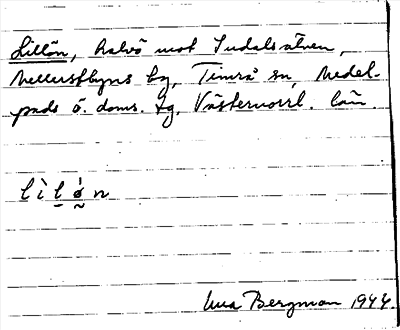 Lillön, halvö mot Indalsälven,
Mellerstbyns by, Timrå sn, Medel-
pads ö. doms. tg, Västernorrl. län.
l ì l ö̀ n
Bergman 1944.